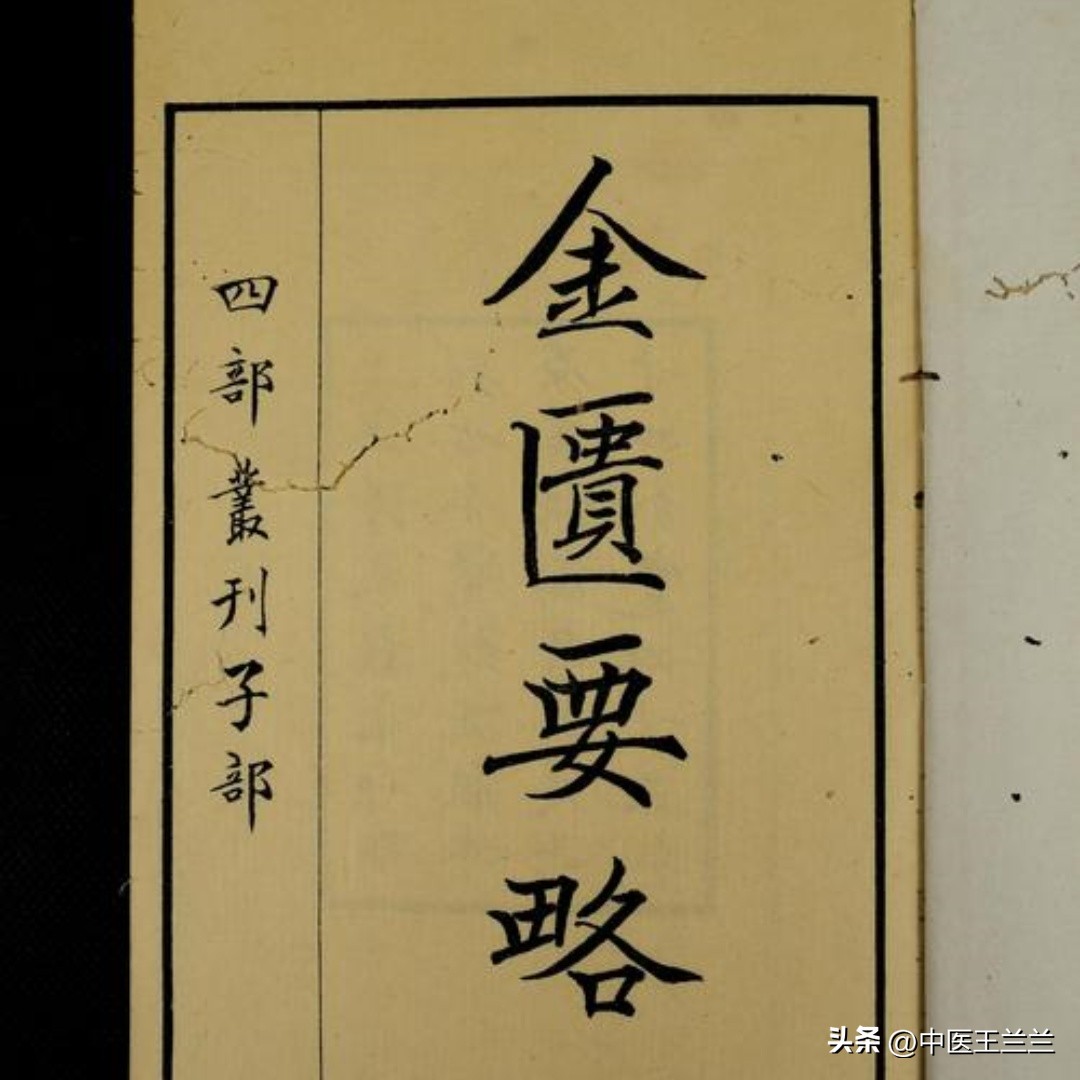 金匱要略
四部叢刊子部
头条 @中医王兰兰